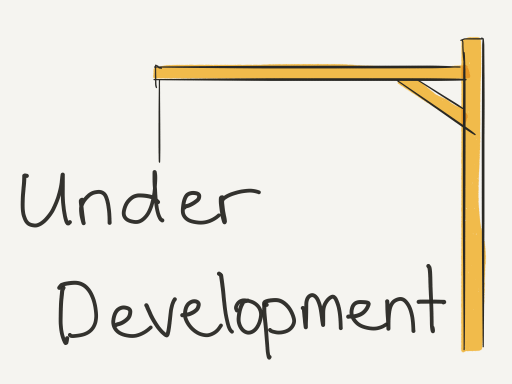 Under
Development